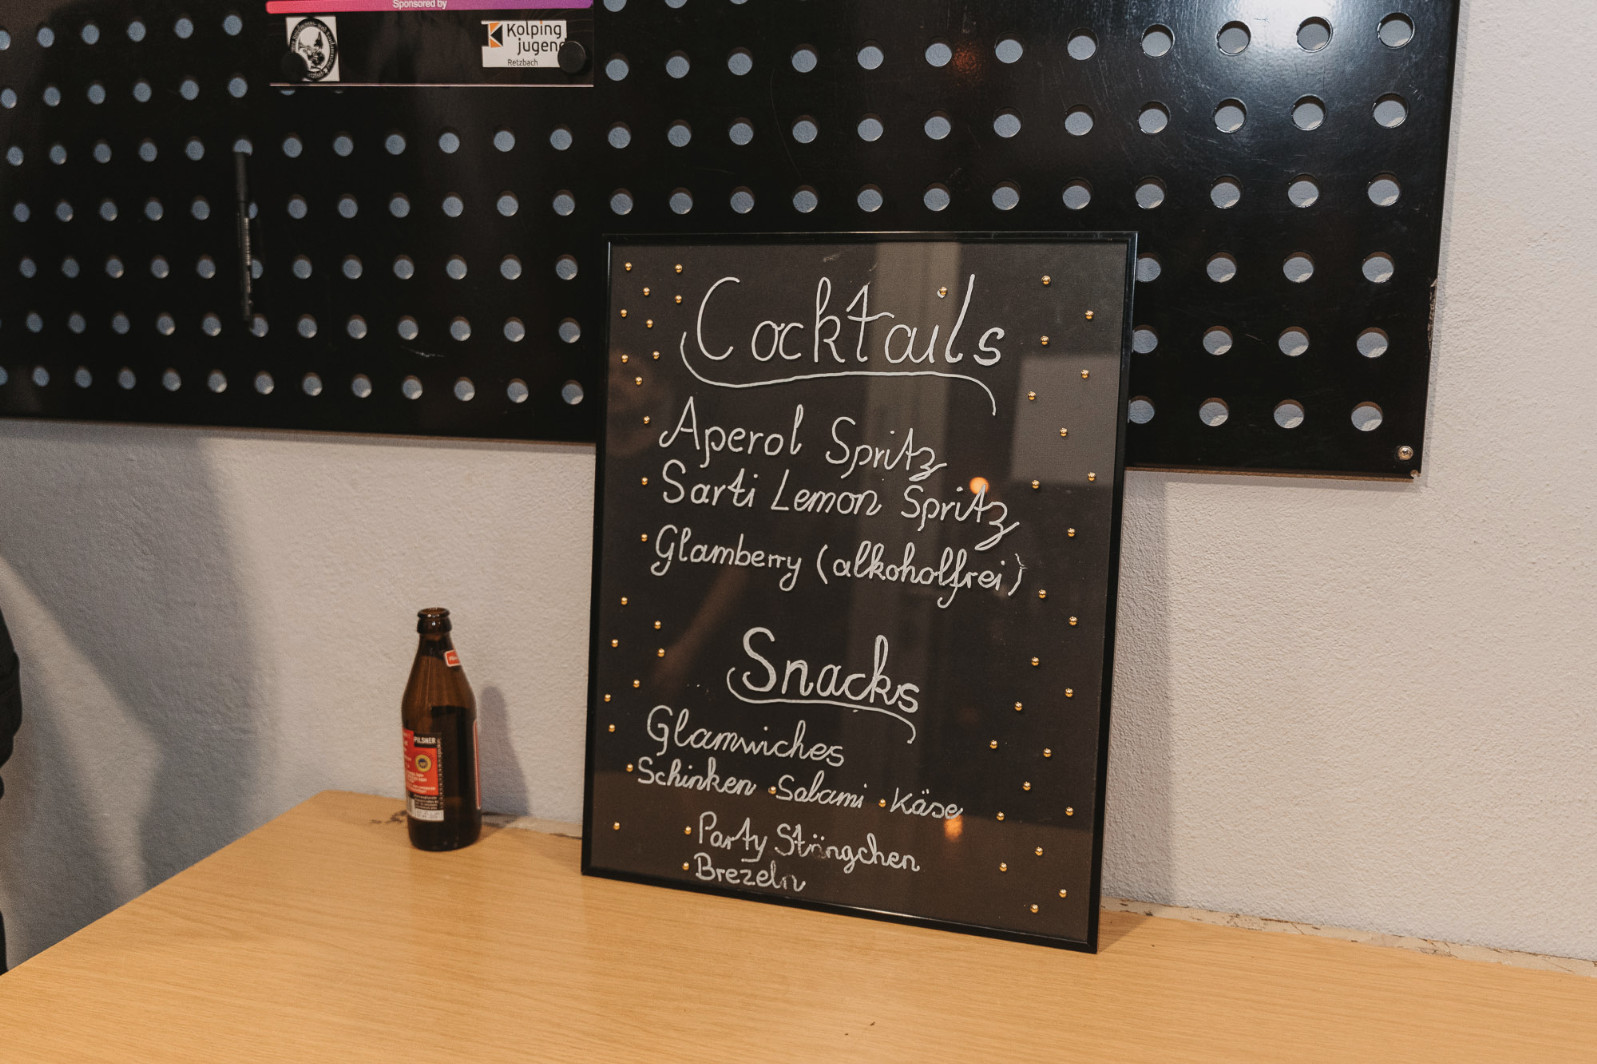 Sponsored by
Kolping
jugend
Retzbach
Cocktails
Aperol Spritz
Sarti Lemon Spritz
Glamberry (alkoholfrei)
Snacks
Glamwiches
Schinken • Salami • Käse
• Party Stängchen
• Brezeln
PILSNER